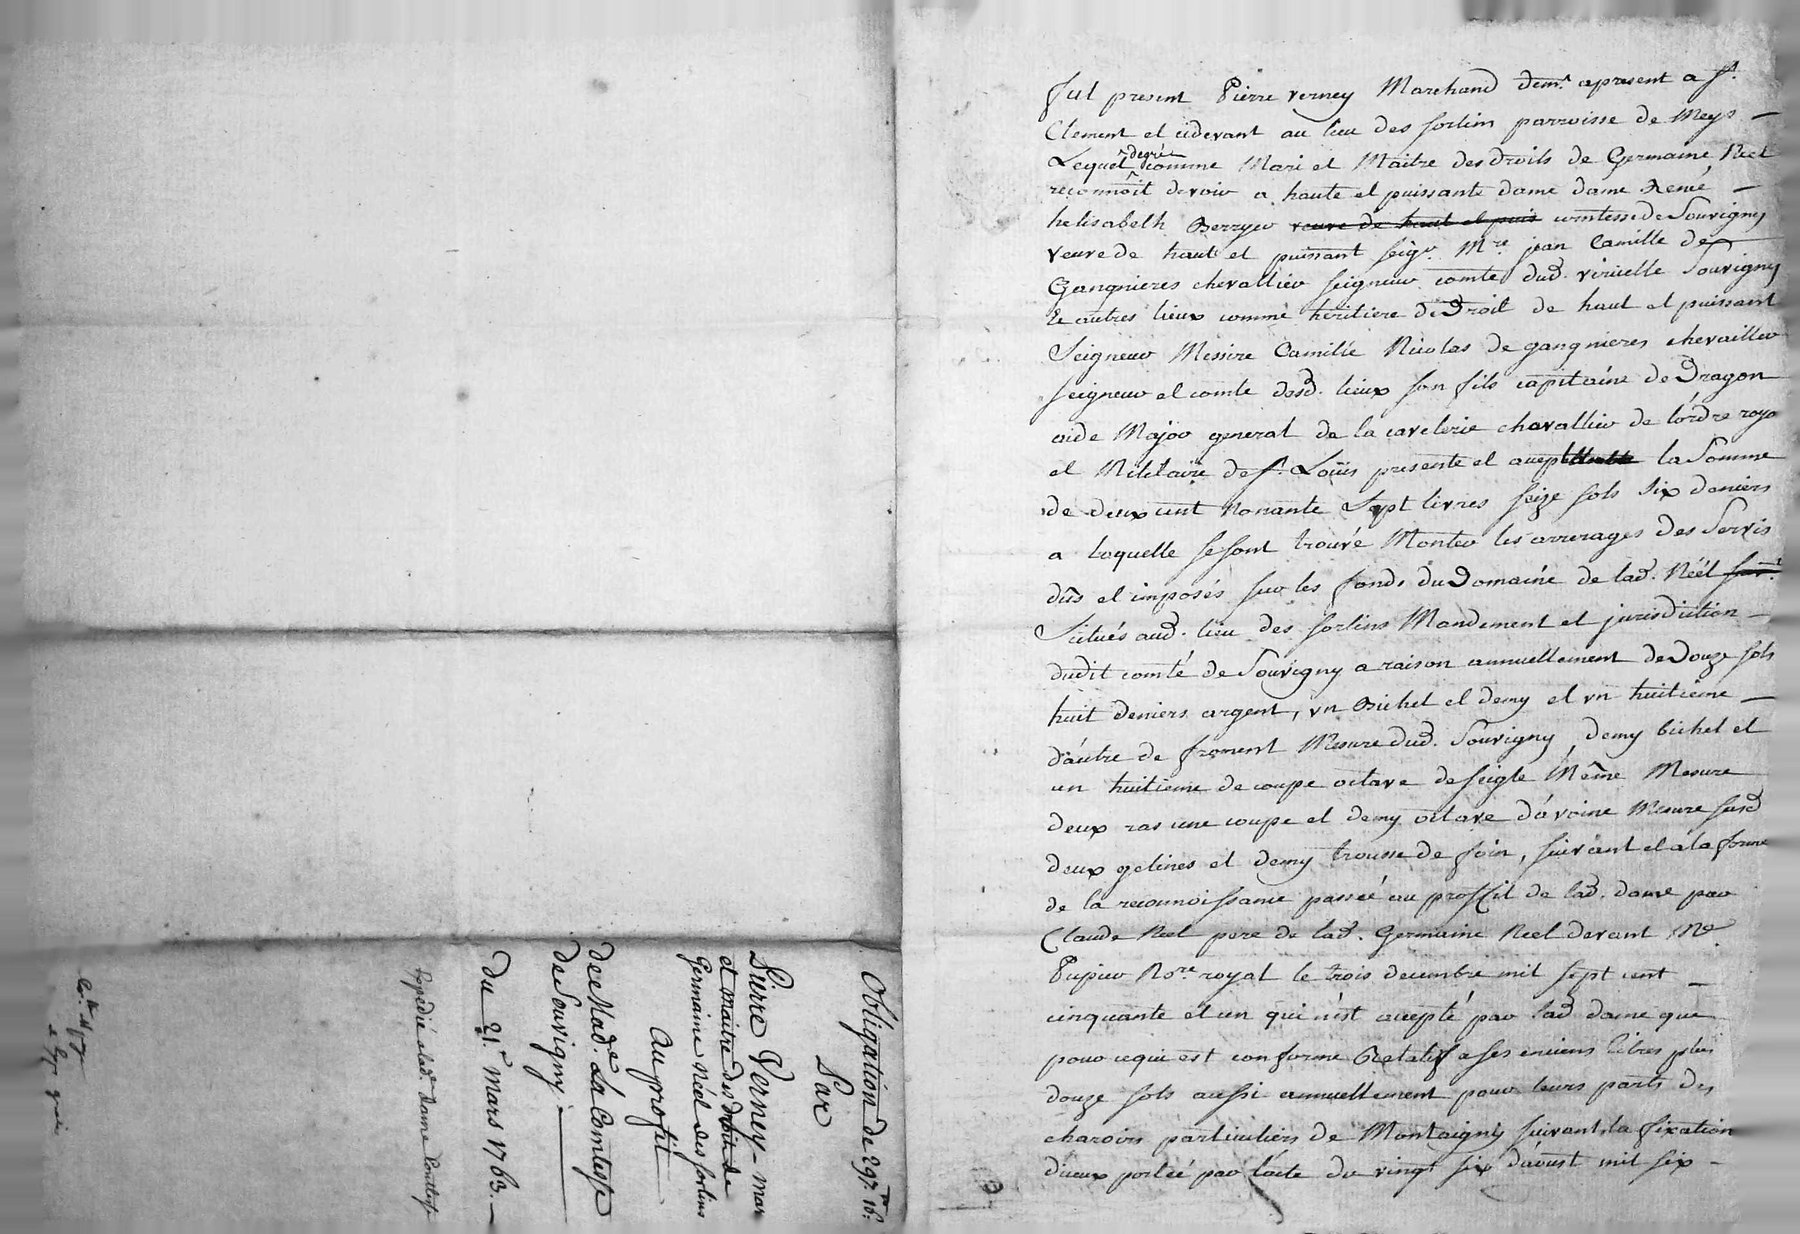 Obligation de 297.tt 16.s
Par
Pierre Verney mar
et maitre des droits de
Germaine Réel des sorlins
au profit
de Mad.e La Comtesse
de Souvigny.
du 21.e mars 1763.
Expedié alad. Dame Comtesse
fut present Pierre verney Marchand dem.t apresent a s.t
Clement et cidevant au lieu des sorlins parroisse de Meys
Lequel de gré comme Mari et Maitre des droits de Germaine Réel
reconnoit devoir a haute et puissante dame dame René
helisabeth Berryer veuve de haut et puis comtesse de Souvigny
veuve de haut et puissant seig.r M.re jean Camille de
Gangnieres chevallier seigneur comte dud. viricelle Souvigny
& autres lieux comme heritiere de Droit de haut et puissant
Seigneur Messire Camille Nicolas de gangnieres chevaillier
seigneur et comte desd. lieux son fils capitaine de Dragon
aide Major general de la cavelerie chevallier de lordre roya
et Militaire de s.t Loüis presente et accept la Somme
de deux cent nonante Sept livres seize sols six deniers
a laquelle se sont trouvé Monter les arrerages des Servis
dûs et imposés sur les fonds du Domaine de lad. Réél
Scitués aud. lieu des sorlins Mandement et jurisdiction
dudit comté de Souvigny a raison annuellement de Douze sols
huit deniers argent, un Bichet et demy et un huitieme
d'autre de froment Mesure dud. Souvigny, demy bichet et
un huitieme de coupe octave de seigle Même Mesure
deux ras une coupe et demy octave d'avoine Mesure susd
deux gelines et demy trousse de foin, suivant et a la forme
de la reconnoissance passée au proffit de lad. dame par
Claude Réel pere de lad. Germaine Reel devant M.e
Pupier No.re royal le trois decembre mil sept cent
cinquante et un qui n'est accepté par lad dame que
pour ce qui est conforme & relatif a ses enciens titres plus
douze sols aussi annuellement pour leurs parts des
charois particuliers de Montaigny suivant la fixation
d'iceux portée par l'acte du vingt six d'aoust mil six